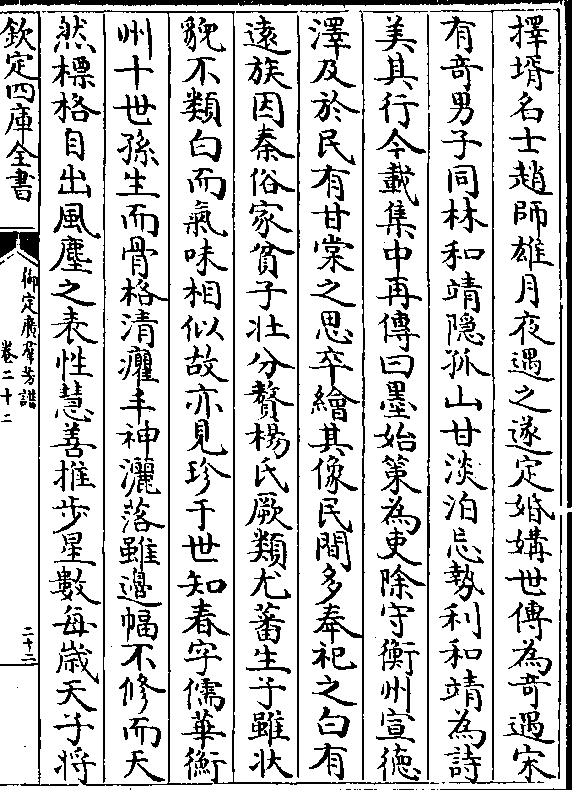 擇壻名士趙師雄月夜遇之遂定婚媾世傳為竒遇宋
有竒男子同林和靖隠孤山甘淡泊忘勢利和靖為詩
美其行今載集中再傳曰墨始䇿為吏除守衡州宣徳
澤及於民有甘棠之思卒繪其像民間多奉祀之白有
逺族因秦俗家貧子壯分贅楊氏厥類尤蕃生子雖狀
貌不類白而氣味相似故亦見珍于世知春字儒華衡
州十世孫生而骨格清癯丰神灑落雖邊幅不修而天
然標格自出風塵之表性慧善推步星數每嵗天子将
欽定四庫全書
御定廣羣芳譜
卷二十二
二十二